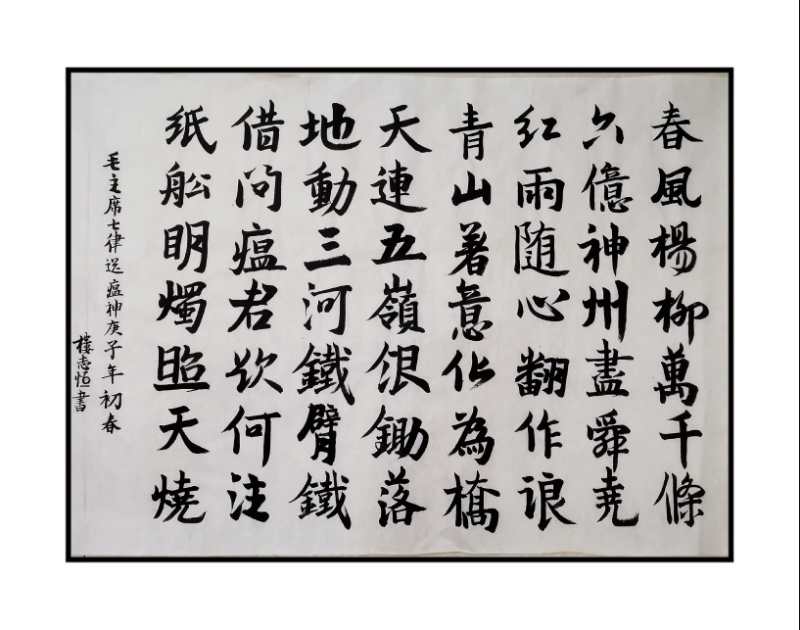 春風楊柳萬千條
六億神州盡舜堯
红雨随心翻作浪
青山著意化為橋
天連五嶺银鋤落
地動三河鐵臂鐵
借问瘟君欲何往
纸船明燭照天燒
毛主席七律送瘟神庚子年初春
樓志恒書